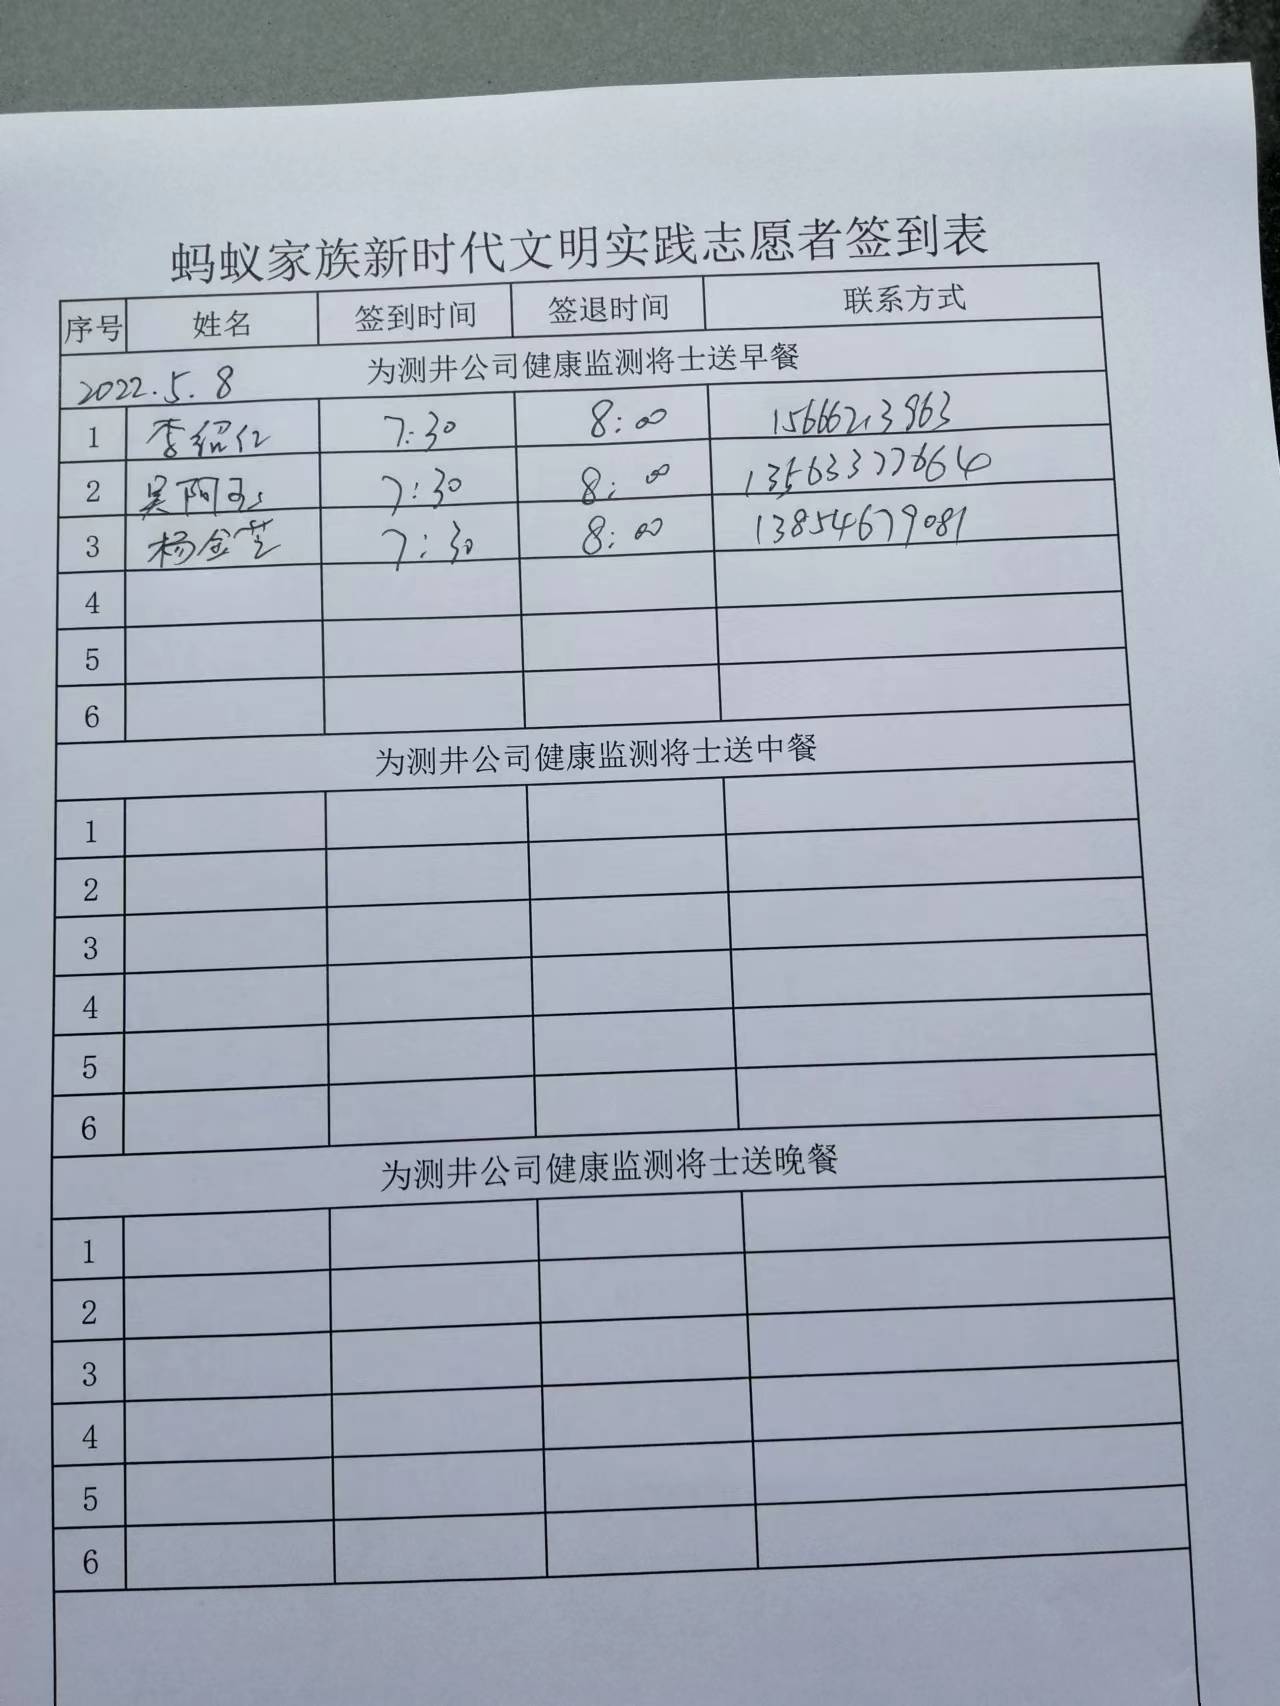 蚂蚁家族新时代文明实践志愿者签到表
序号 姓名 签到时间 签退时间 联系方式
2022.5.8 为测井公司健康监测将士送早餐
1 李绍仁 7:30 8:00 15666213963
2 吴阿玉 7:30 8:00 13563377664
3 杨金芝 7:30 8:00 13854679081
4
5
6
为测井公司健康监测将士送中餐
1
2
3
4
5
6
为测井公司健康监测将士送晚餐
1
2
3
4
5
6